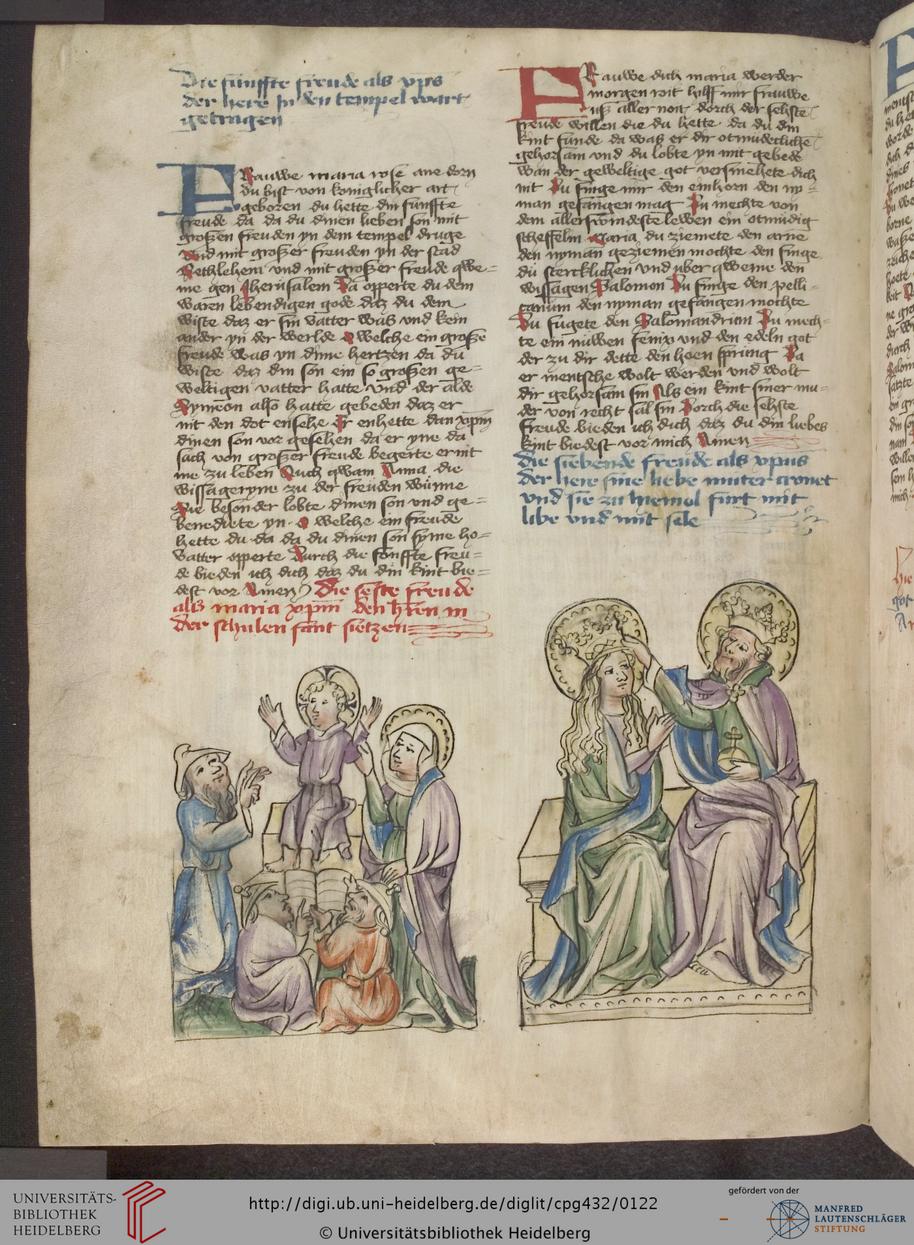 Die funffte freude als xpus
der here in den tempel wart
getragen
FRauwe maria rose ane dorn
du bist von koniglicher art
geboren du hette din funffte
freude da da du dinen lieben son mit
großen freuden yn dem tempel druge
Und mit großer freuden yn der stad
Bethlehem und mit großer freude qwe=
me gen Jherusalem Da opperte du dem
waren lebendigen gode daz du dem
wiste daz er sin vatter was und kein
ander yn der werlde O welche ein große
freude was yn dime hertzen da du
wiste daz din son ein so großen ge=
weltigen vatter hatte und der alde
Symeon also hatte gebeden daz er
nit den dot ensehe Er enhette dan xpm
dinen son vor gesehen da er yne da
sach von großer freude begerte er nit
me zu leben Auch qwam Anna die
wissageryne zu der freuden wunne
Die besonder lobte dinen son und ge=
benediete yn O welche ein freude
hette du da da du dinen son syme ho=
vatter opperte Durch die fonffte freu=
de bieden ich dich daz du din kint bie=
dest vor Amen Die seste freude
als maria xpm den hren in
der schulen fant sietzen
FRauwe dich maria werder
morgen roit hilff mir frauwe
uß aller noit dorch der sehste
freude willen die du hette da du din
kint funde da was er dir otmudecliche
gehorsam und du lobte yn mit gebede
wan der geweltige got versmehete dich
nit Du finge mir den einhorn den ny=
man gefangen mag Du mechte von
dem aller grymdeste lewen ein otmudig
scheffelin Maria du ziemete den arne
den nyman geziemen mochte den finge
du sterclichen und uber qweme den
wissagen Salomon Du finge den pelli=
canum den nyman gefangen mochte
Du fugete den Salomandrum Du mech=
te ein nuwen fenix und den edeln got
der zu dir dette den hoen spring Da
er mentsche wolt werden und wolt
dir gehorsam sin Als ein kint siner mu=
der von recht sal sin Dorch die sehste
freude bieden ich dich daz du din liebes
kint biedest vor mich Amen
Die siebende freude als xpus
der here sine liebe muter cronet
und sie zu hiemel furt mit
libe und mit sele
UNIVERSITÄTS-
BIBLIOTHEK
HEIDELBERG
http://digi.ub.uni-heidelberg.de/diglit/cpg432/0122
© Universitätsbibliothek Heidelberg
gefördert von der
MANFRED
LAUTENSCHLÄGER
STIFTUNG